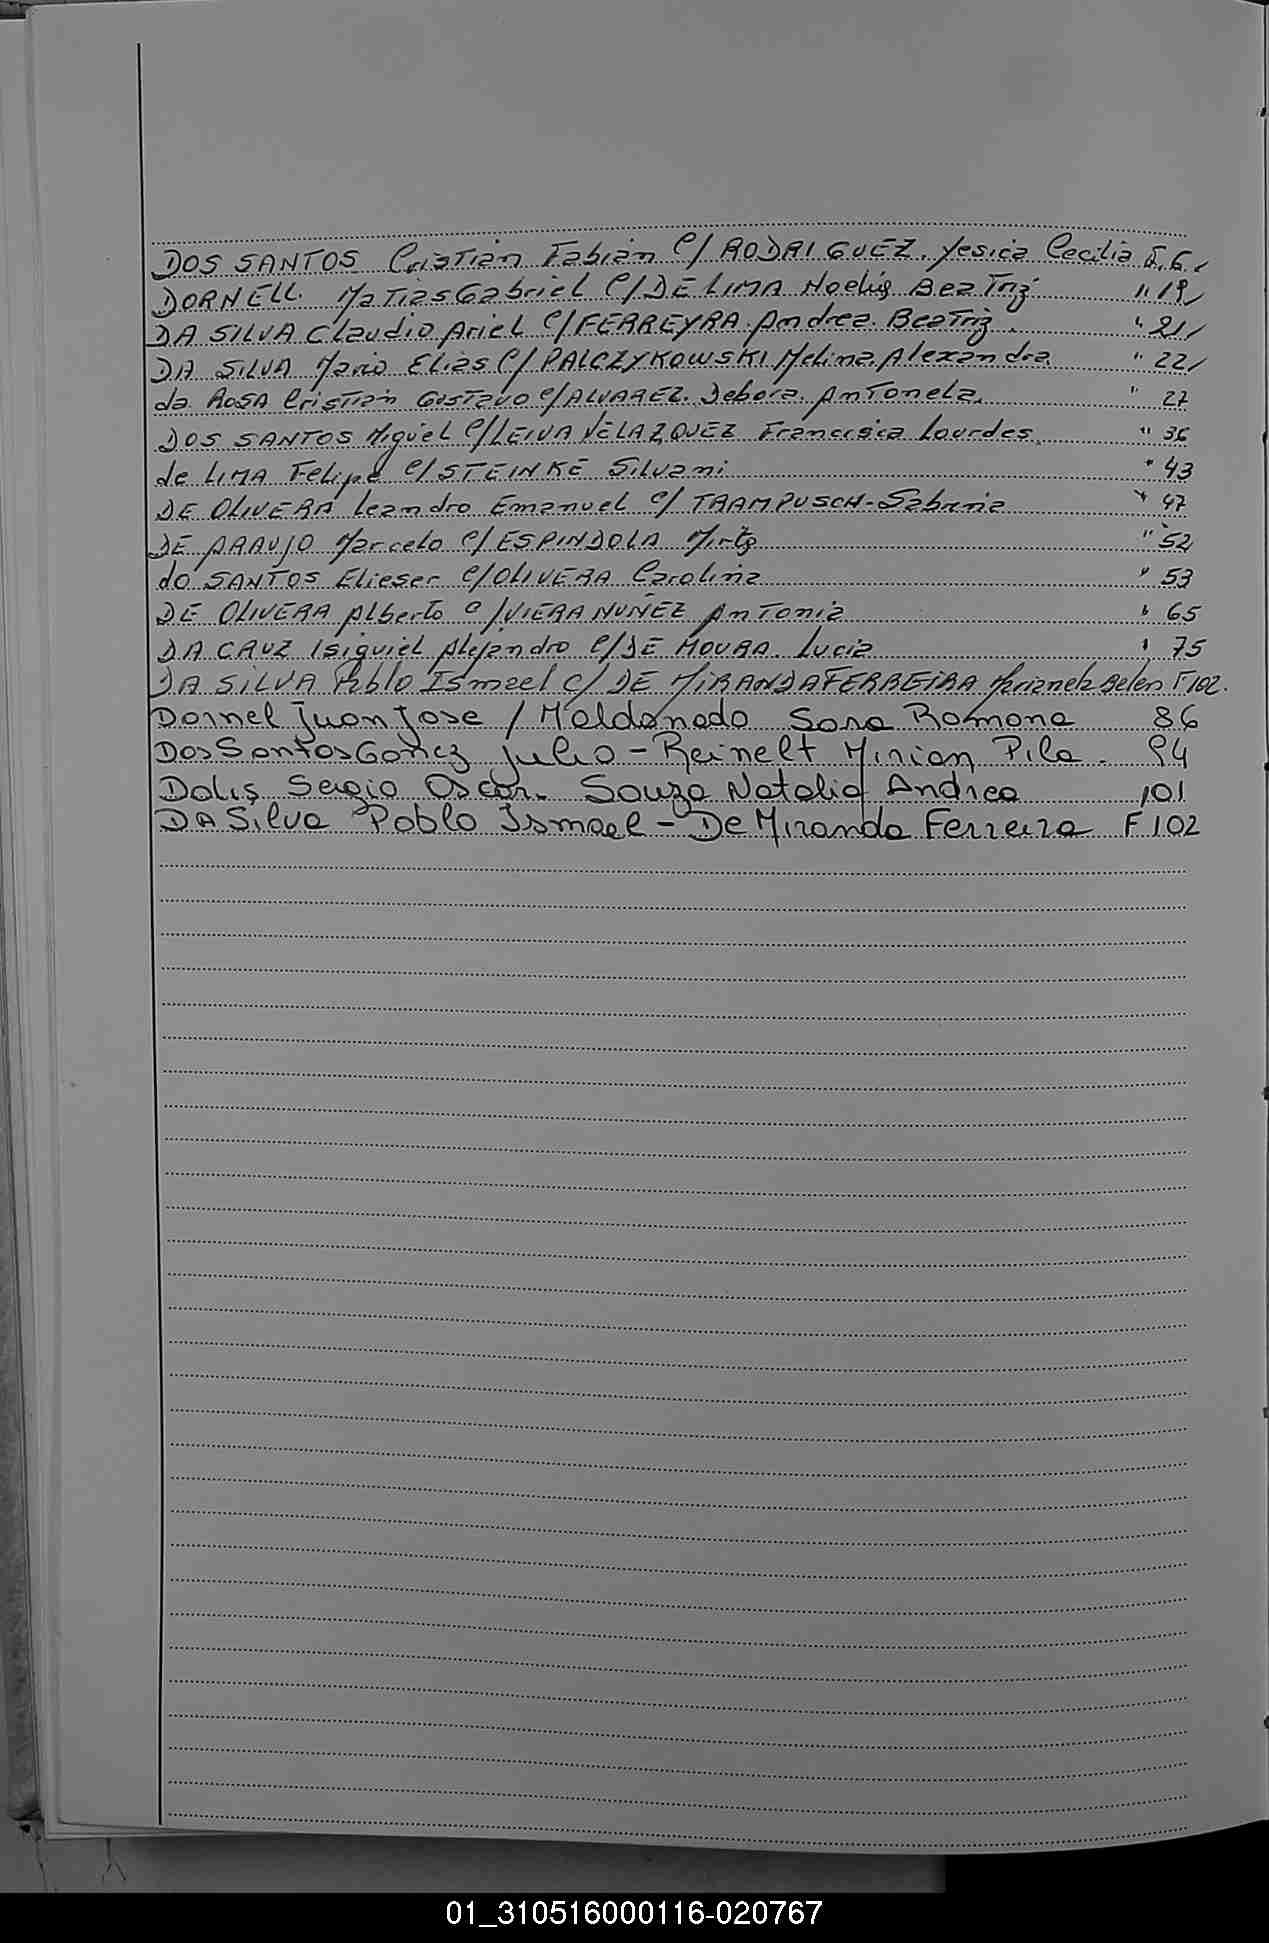 DOS SANTOS Cristian Fabian C/ RODRIGUEZ. Yesica Cecilia F. 6.
DORNELL. Matias Gabriel C/ DE LIMA Noelia Beatriz " 19
DA SILVA Claudio Ariel C/ FERREYRA. Andrea. Beatriz. " 21
DA SILVA Mario Elias C/ PALCZYKOWSKI Melina Alexandra. " 22
da ROSA Cristian Gustavo C/ ALVAREZ. Debora. Antonela. " 27
DOS SANTOS Miguel C/ LEIVA VELAZQUEZ Francisca Lourdes. " 36
de LIMA Felipe C/ STEINKE Silvani " 43
DE OLIVERA Leandro Emanuel C/ TRAMPUSCH - Sabrina " 47
DE ARAUJO Marcelo C/ ESPINDOLA Mirta " 52
do SANTOS Elieser C/ OLIVERA Carolina " 53
DE OLIVERA Alberto C/ VIERA NUÑEZ Antonia " 65
DA CRUZ Isiguiel Alejandro C/ DE MOURA. Lucia " 75
DA SILVA Pablo Ismael C/ DE MIRANDA FERREIRA Marianela Belen F 102.
Dornel Juan Jose / Maldonado Sara Ramona 86
Dos Santos Gomez Julio - Reinelt Mirian Pila. 94
Dalis Sergio Oscar. Souza Natalia Andrea 101
DA Silva Pablo Ismael - De Miranda Ferreira F 102
01_310516000116-020767